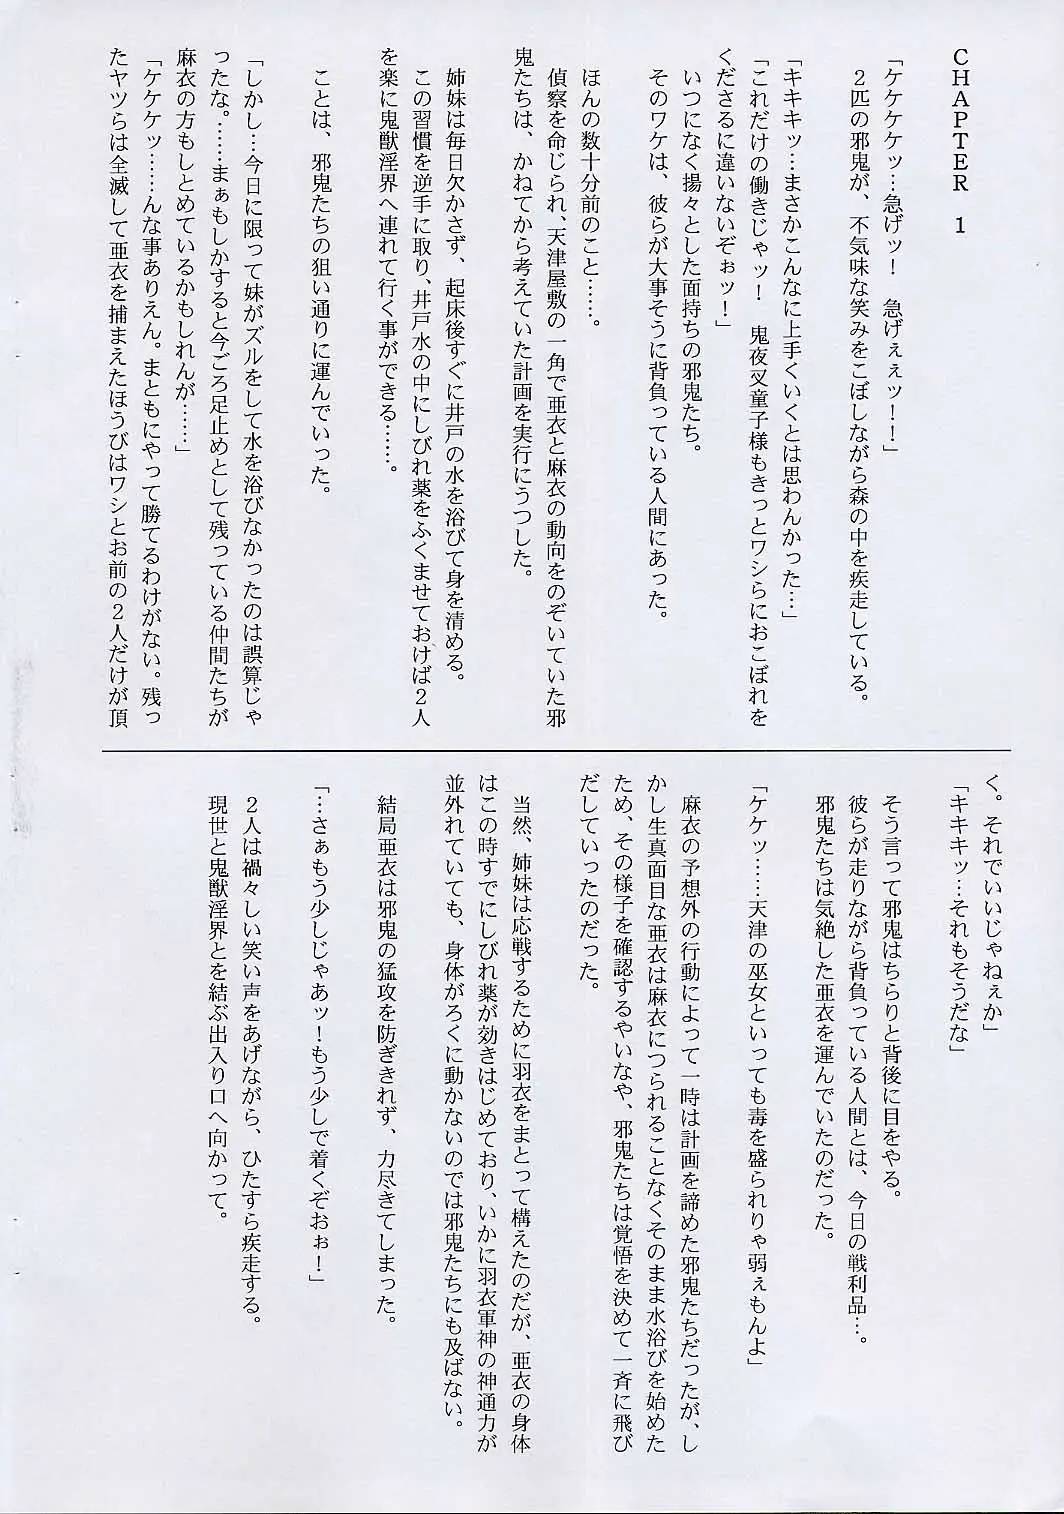 CHAPTER 1
「ケケケケッ…急げッ！　急げぇぇッ！！」
２匹の邪鬼が、不気味な笑みをこぼしながら森の中を疾走している。
「キキキッ…まさかこんなに上手くいくとは思わんかった…」
「これだけの働きじゃッ！　鬼夜叉童子様もきっとワシらにおこぼれを
くださるに違いないぞぉッ！」
いつになく揚々とした面持ちの邪鬼たち。
そのワケは、彼らが大事そうに背負っている人間にあった。
ほんの数十分前のこと……。
偵察を命じられ、天津屋敷の一角で亜衣と麻衣の動向をのぞいていた邪
鬼たちは、かねてから考えていた計画を実行にうつした。
姉妹は毎日欠かさず、起床後すぐに井戸の水を浴びて身を清める。
この習慣を逆手に取り、井戸水の中にしびれ薬をふくませておけば２人
を楽に鬼獣淫界へ連れて行く事ができる……。
ことは、邪鬼たちの狙い通りに運んでいった。
「しかし…今日に限って妹がズルをして水を浴びなかったのは誤算じゃ
ったな。……まぁもしかすると今ごろ足止めとして残っている仲間たちが
麻衣の方もしとめているかもしれんが……」
「ケケケッ……んな事ありえん。まともにやって勝てるわけがない。残っ
たヤツらは全滅して亜衣を捕まえたほうびはワシとお前の２人だけが頂
く。それでいいじゃねぇか」
「キキキッ…それもそうだな」
そう言って邪鬼はちらりと背後に目をやる。
彼らが走りながら背負っている人間とは、今日の戦利品…。
邪鬼たちは気絶した亜衣を運んでいたのだった。
「ケケッ……天津の巫女といっても毒を盛られりゃ弱ぇもんよ」
麻衣の予想外の行動によって一時は計画を諦めた邪鬼たちだったが、し
かし生真面目な亜衣は麻衣につられることなくそのまま水浴びを始めた
ため、その様子を確認するやいなや、邪鬼たちは覚悟を決めて一斉に飛び
だしていったのだった。
当然、姉妹は応戦するために羽衣をまとって構えたのだが、亜衣の身体
はこの時すでにしびれ薬が効きはじめており、いかに羽衣軍神の神通力が
並外れていても、身体がろくに動かないのでは邪鬼たちにも及ばない。
結局亜衣は邪鬼の猛攻を防ぎきれず、力尽きてしまった。
「…さぁもう少しじゃあッ！もう少しで着くぞおぉ！」
２人は禍々しい笑い声をあげながら、ひたすら疾走する。
現世と鬼獣淫界とを結ぶ出入り口へ向かって。